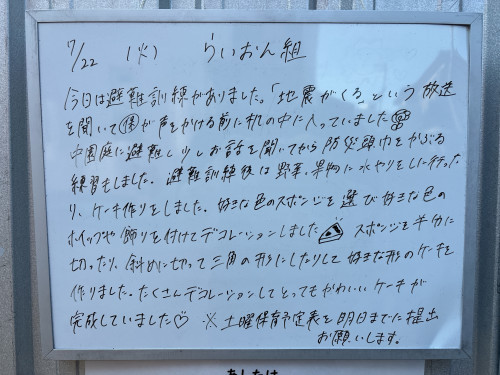 7/22 (火) らいおん組
今日は避難訓練がありました。「地震がくる」という放送
を聞いて㋭が声をかける前に机の中に入っていました
中園庭に避難し少しお話を聞いてから防災頭巾をかぶる
練習もしました。避難訓練後は野菜、果物に水やりをしに行った
り、ケーキ作りをしました。好きな色のスポンジを選び好きな色の
ホイップや飾りを付けてデコレーションしました スポンジを半分に
切ったり、斜めに切って三角の形にしたりして好きな形のケーキを
作りました。たくさんデコレーションしてとってもかわいいケーキが
完成していました♡ ※土曜保育予定表を明日までに提出
お願いします。
あしたは